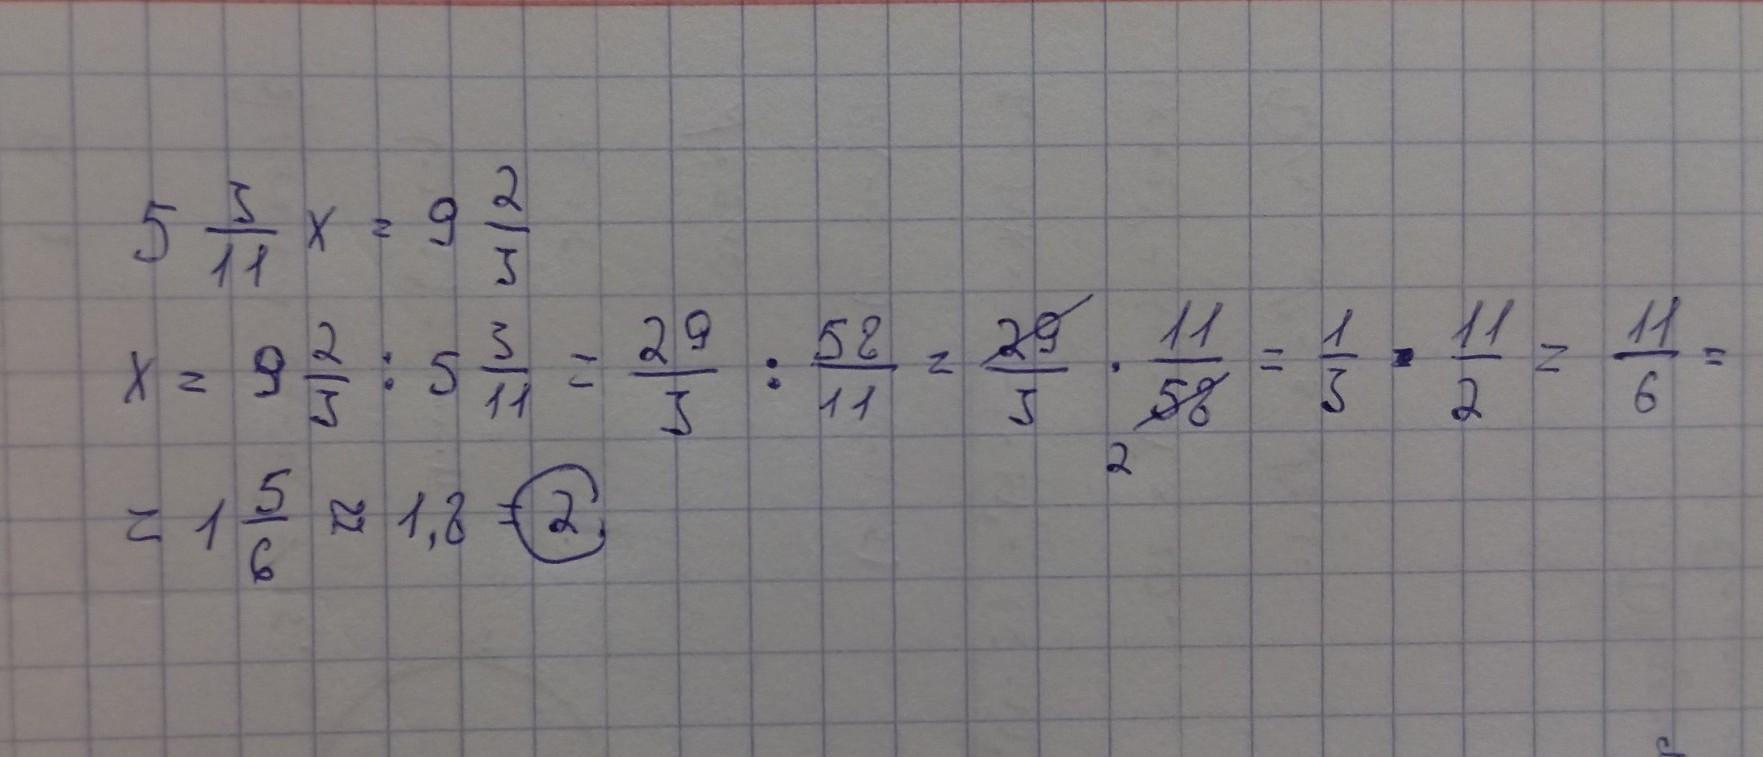 5 3/11 x = 9 2/3
x = 9 2/3 : 5 3/11 = 29/3 : 58/11 = 29/3 · 11/58 2 = 1/3 · 11/2 = 11/6 =
= 1 5/6 ≈ 1,8 = 2